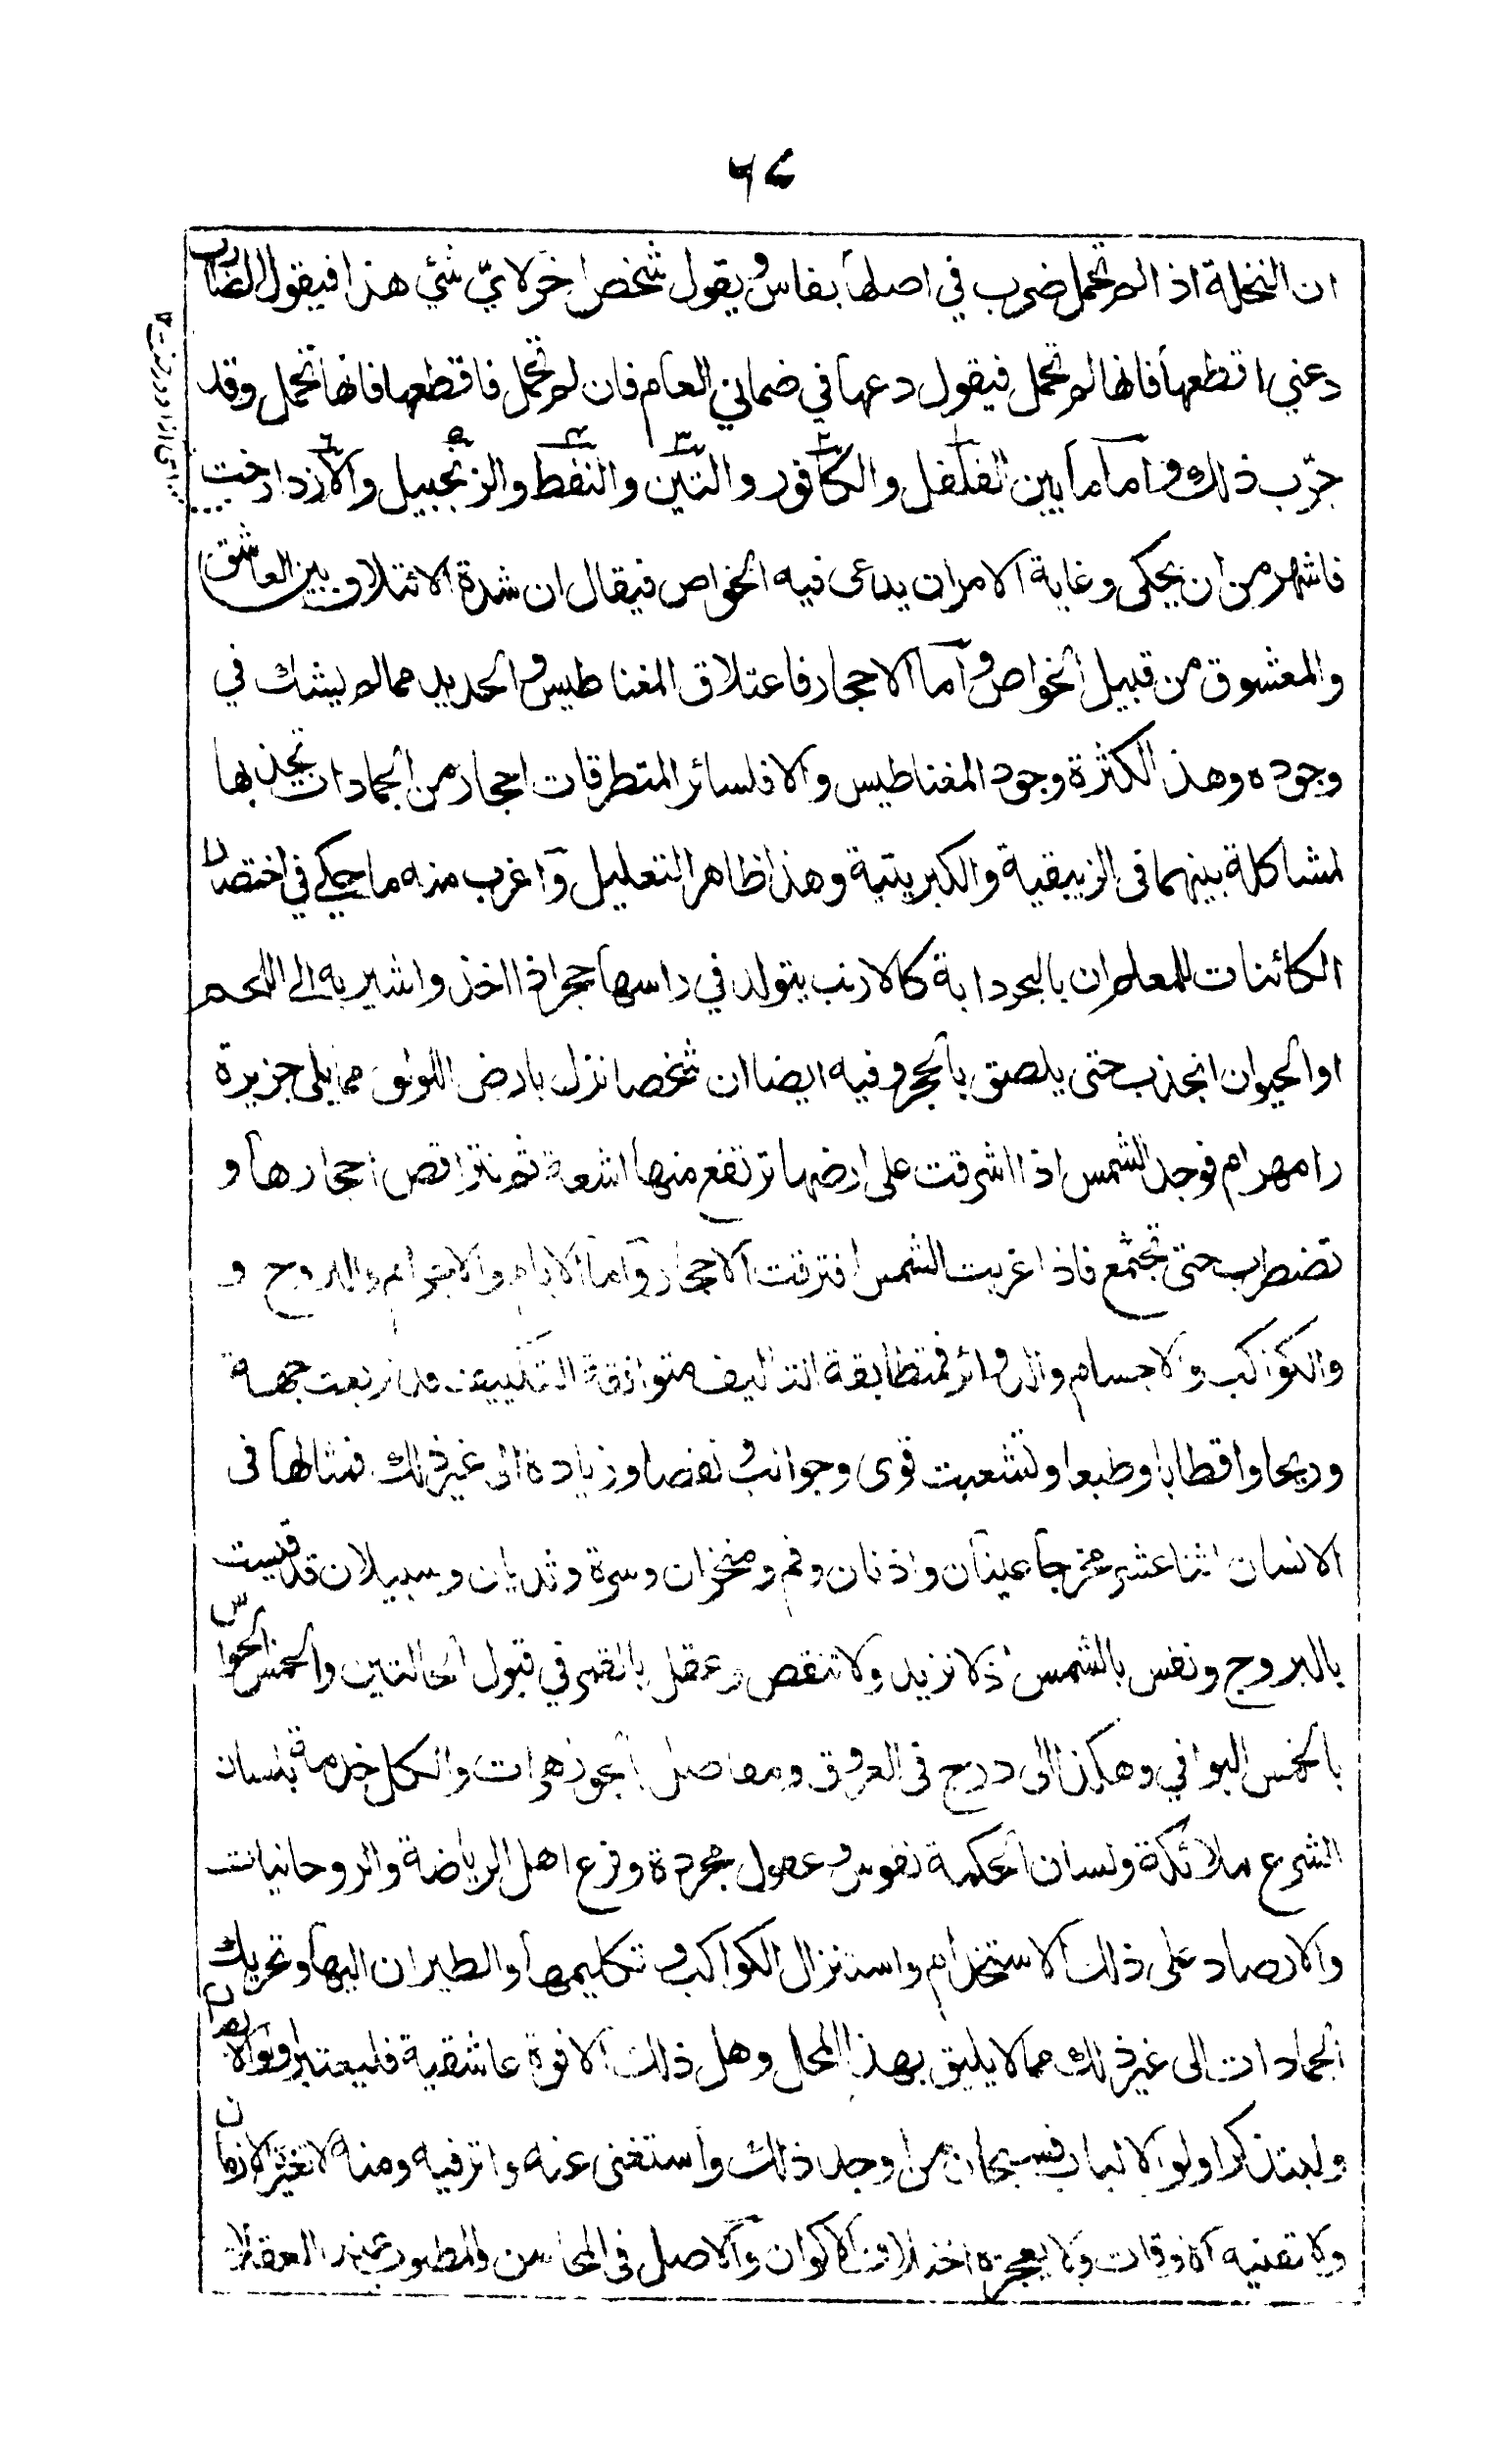 ان النخلة اذ المر تحمل ضرب في اصلها بفاس ويقول شخص اخر لاي شئ هذا فيقول الضارب
دعني اقطعها فانها لم تحمل فيقول دعها في ضماني العام فان لم تحمل فاقطعها فانها تحمل وقد
جرّب ذلك واما ما بين الفلفل والكافور والتين والنفط والزنجبيل والازدادرخت
فاشهر من ان يحكى وغاية الامر ان يدعى فيه الخواص فيقال ان شدة الائتلاف بين العاشق
والمعشوق من قبيل الخواص واما الاحجار فاعتلاق المغناطيس والحديد مما لم يشك في
وجوده وهذا لكثرة وجود المغناطيس والا فلسائر المتطرقات احجار من الجمادات تجذبها
لمشاكلة بينهما فى الزيبقية والكبريتية وهذا ظاهر التعليل واغرب منه ما حكي في اختصار
الكائنات للمعلم ان بالبحر دابة كالارنب يتولد في راسها حجر اذا اخذ واشير به الى اللحم
او الحيوان انجذب حتى يلصق بالحجر وفيه ايضا ان شخصا نزل بارض اللوٯ مما يلي جزيرة
رامهرام فوجد الشمس اذا اشرقت على ارضها ترتفع منها اشعة ثم تتراقص احجارها و
تضطرب حتى تجتمع فاذا غربت الشمس افترقت الاحجار واما الايام والاجرام والبروج و
والكواكب والاجسام والدوائر فمتطابقة التاليف متوافقة التكييف قد ربعت جهة
وريحا واقطابا وطبعا وتشعبت قوى وجوانب ونقصا وزيادة الى غير ذلك فمثالها فى
الانسان اثنا عشر مخرجا عينان واذنان وفم ومنخران وسرة وثديان وسبيلان قد قيست
بالبروج ونفس بالشمس اذ لا تزيد ولا تنقص وعقل بالقمر في قبول الحالتين والخمس الحواس
بالخمس البواقي وهكذا الى درج فى العروق ومفاصل الجوزهرات والكل خدمة بلسان
الشرع ملائكة ولسان الحكمة نفوس وعقول مجردة وفرع اهل الرياضة والروحانيات
والارصاد على ذلك الاستخدام واستنزال الكواكب وتكليمها والطيران اليها وتحريك
الجمادات الى غير ذلك مما لا يليق بهذا المحل وهل ذلك الا قوة عاشقية فليعتبر اولوا الابصار
وليتذكر اولو الالباب فسبحان من اوجد ذلك واستغنى عنه واثر فيه ومنه لا تغيره الازمان
ولا تفنيه الاوقات ولا يعجزه اختلاف الاكوان والاصل فى المحاسن والمطلوب عند العقلاء